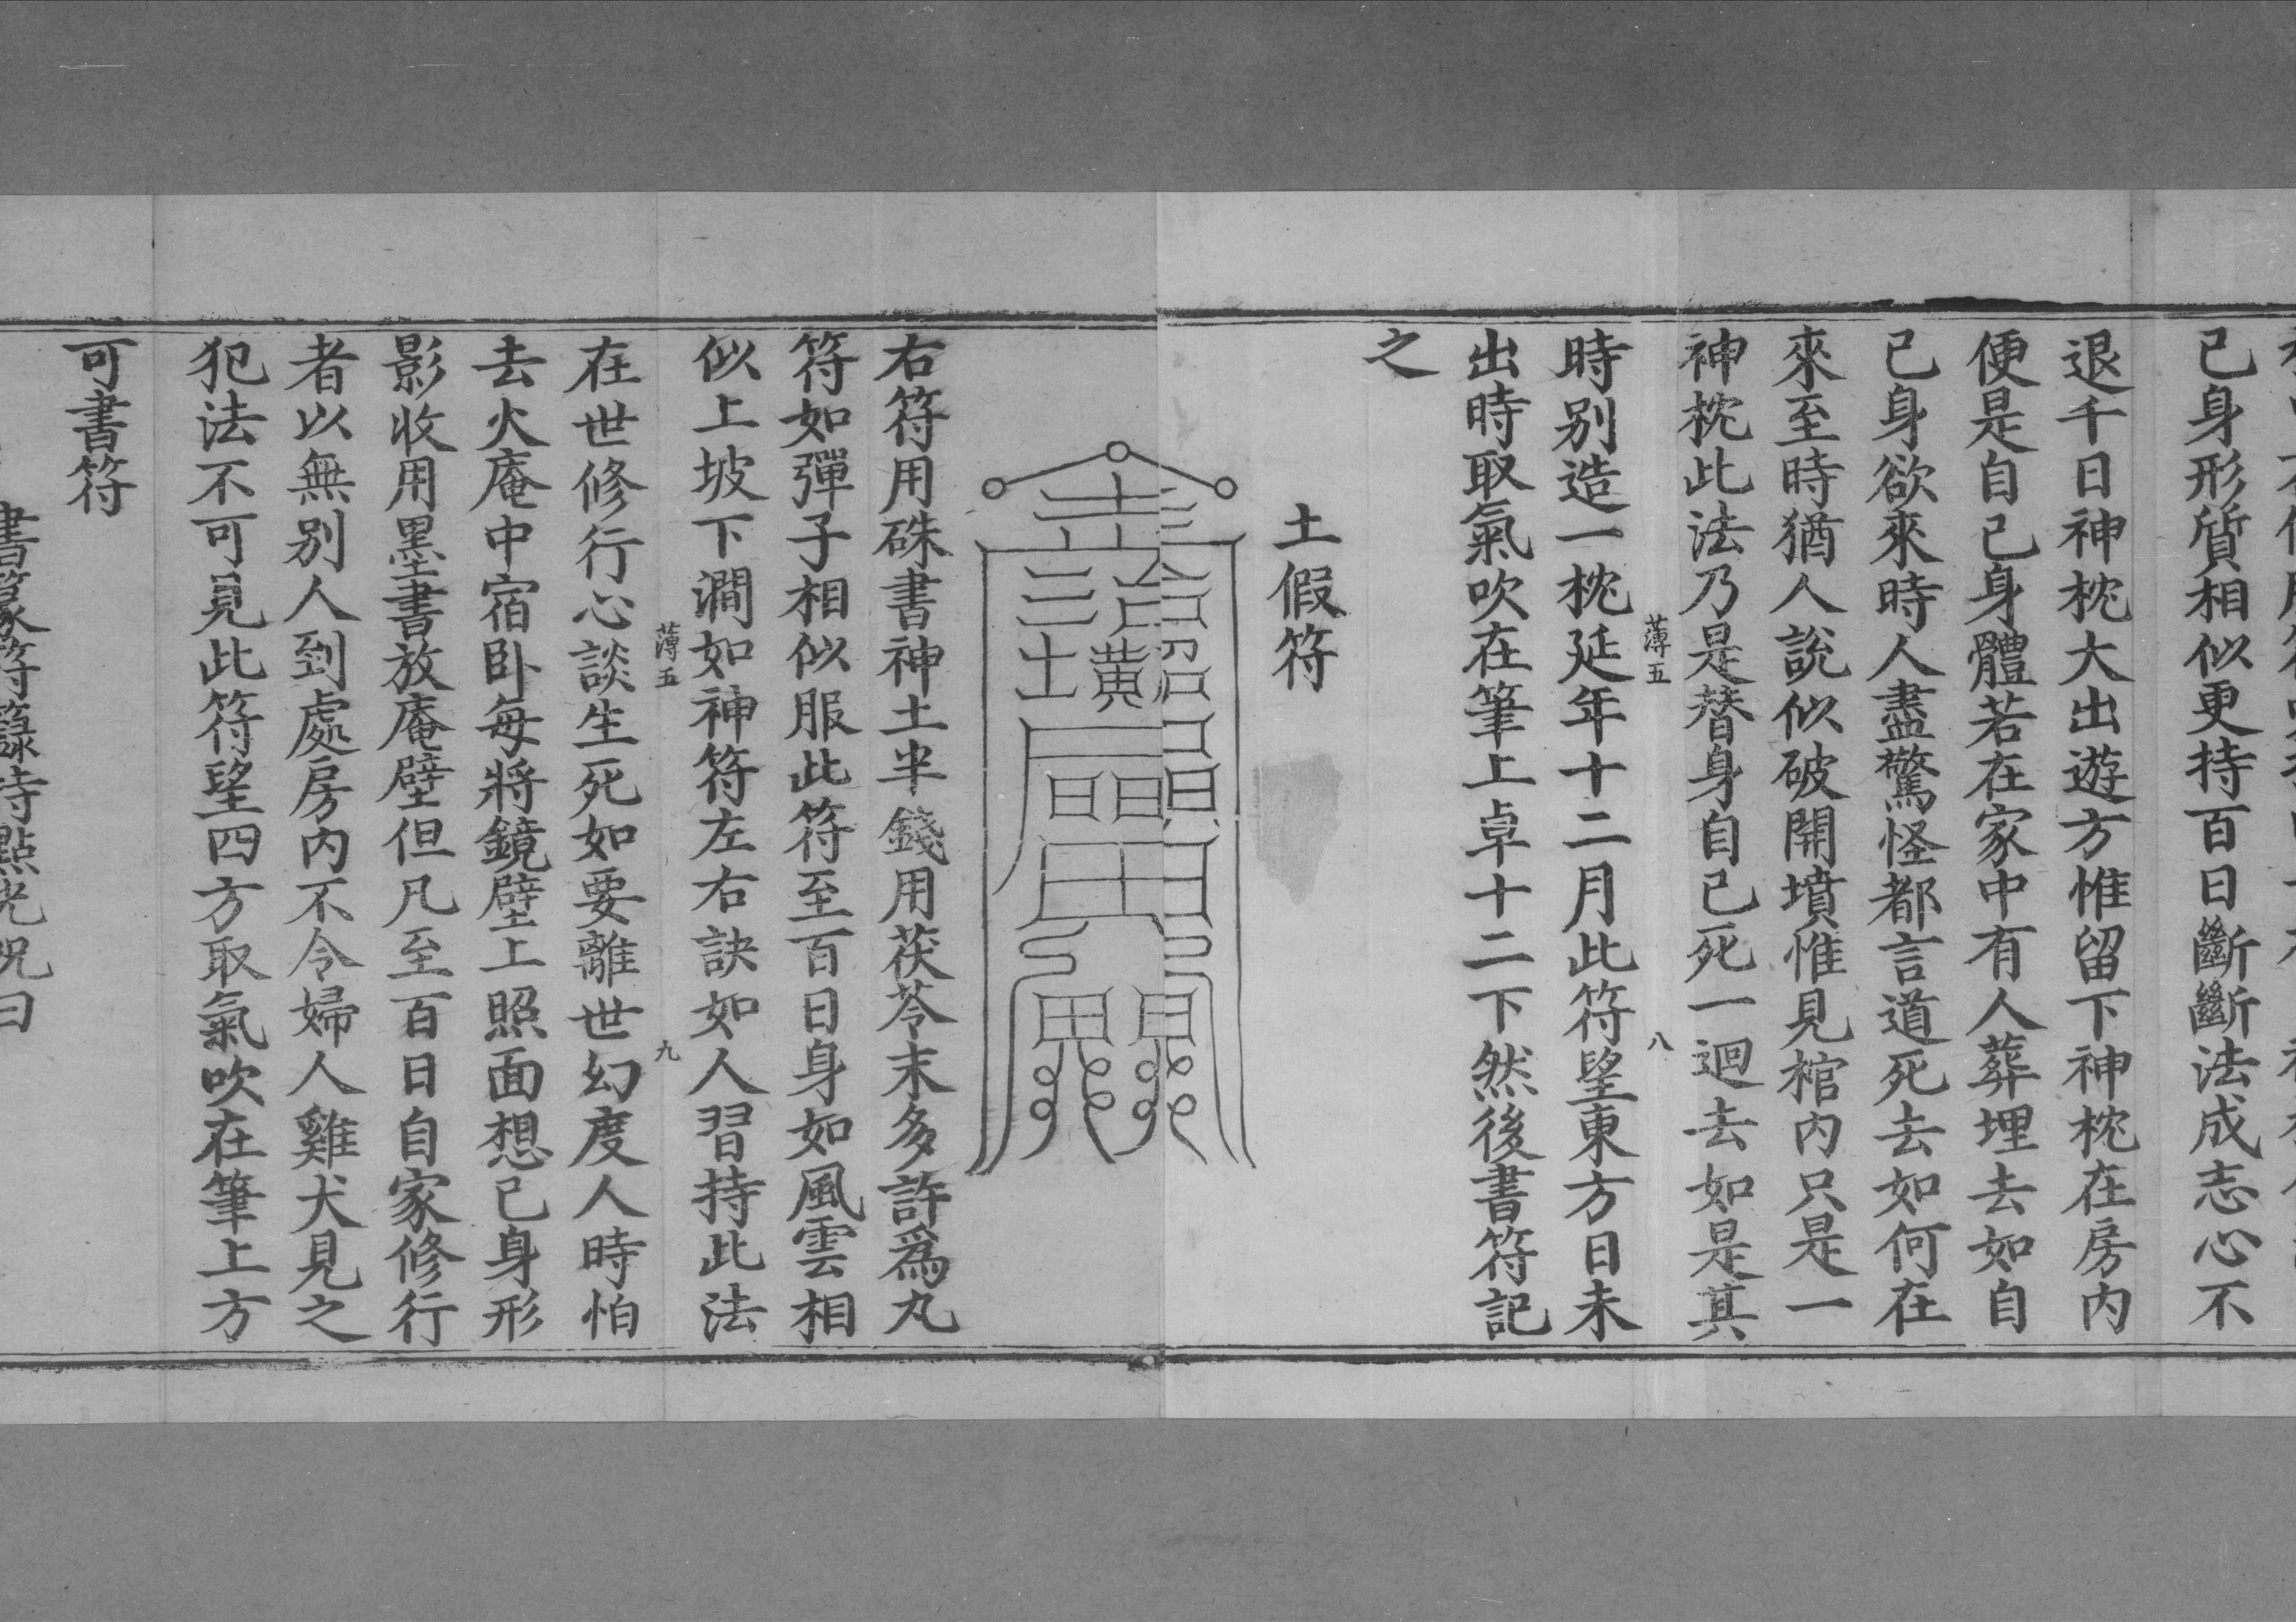 己身形質相似更持百日斷斷法成志心不
退千日神枕大出遊方惟留下神枕在房內
便是自己身體若在家中有人葬埋去如自
己身欲來時人盡驚怪都言道死去如何在
來至時猶人說似破開墳惟見棺內只是一
神枕此法乃是替身自己死一迴去如是其
薄五
八
時別造一枕延年十二月此符望東方日未
出時取氣吹在筆上卓十二下然後書符記
之
土假符
右符用硃書神土半錢用茯苓末多許爲丸
符如彈子相似服此符至百日身如風雲相
似上坡下澗如神符左右訣如人習持此法
薄五
九
在世修行心談生死如要離世幻度人時怕
去火庵中宿卧每將鏡壁上照面想己身形
影收用墨書放庵壁但凡至百日自家修行
者以無別人到處房內不令婦人雞犬見之
犯法不可見此符望四方取氣吹在筆上方
可書符
書篆符籙時點光呪曰